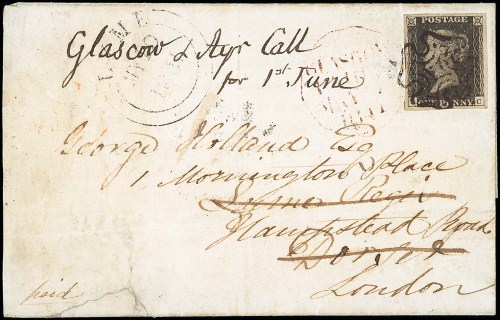 POSTAGE
ONE PENNY
LYME
Glascow & Ayr Call
for 1st June
George Holland Esq
1 Mornington Place
Lyme Regis
Hampstead Road
Dorset
London
paid